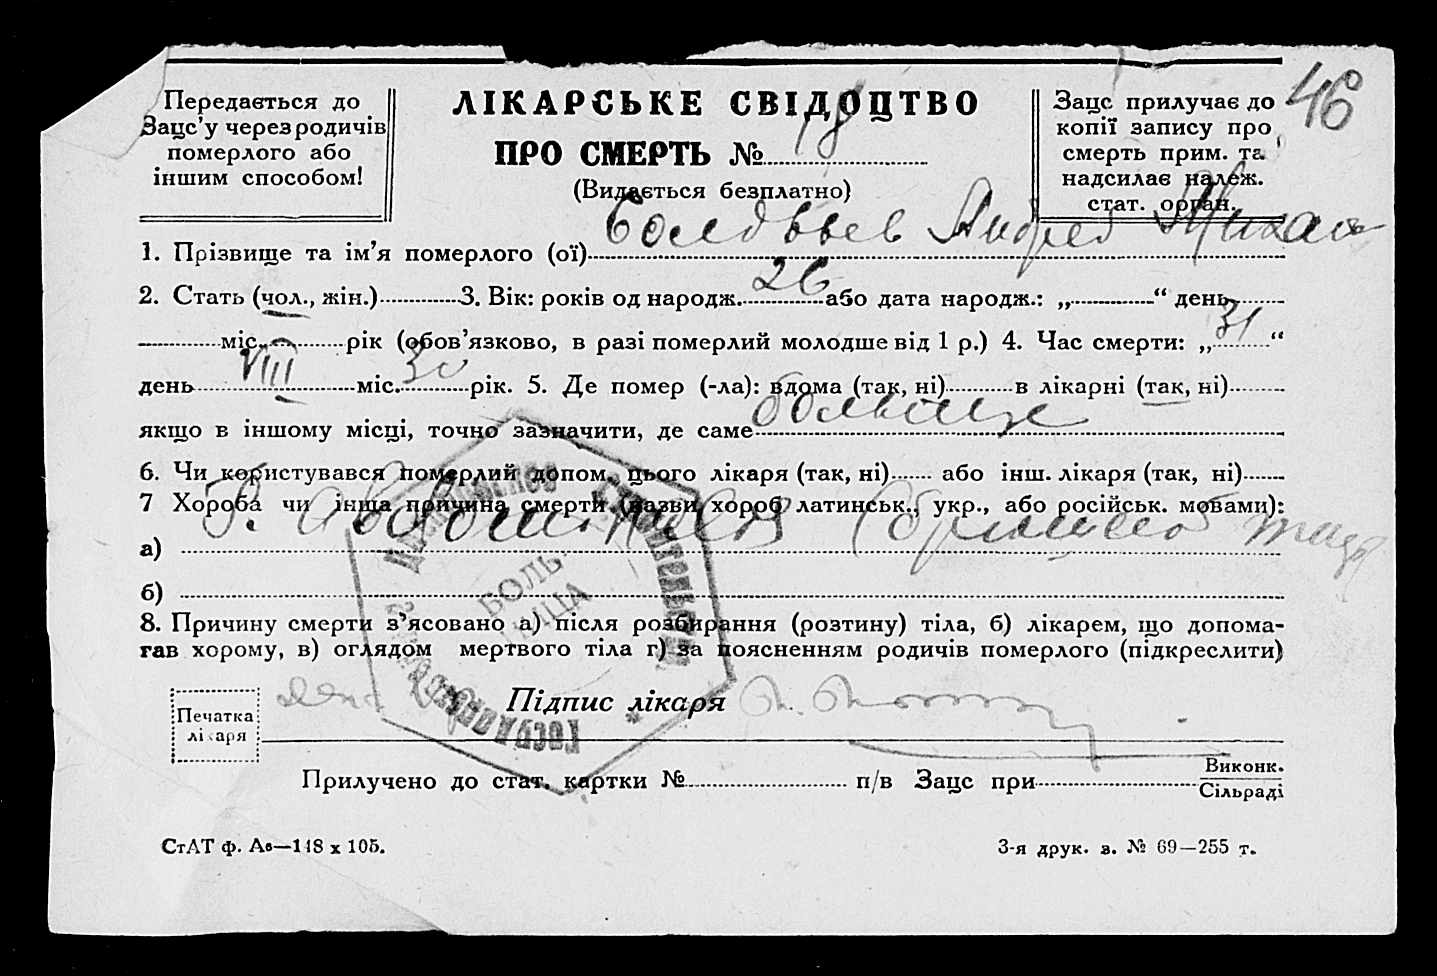 46
Передається до
Зацс'у через родичів
померлого або
іншим способом!
ЛІКАРСЬКЕ СВІДОЦТВО
ПРО СМЕРТЬ № 18
(Видається безплатно)
Зацс прилучає до
копії запису про
смерть прим. та
надсилає належ.
стат. орган.
1. Прізвище та ім'я померлого (ої) Андрей
2. Стать (чол., жін.) 3. Вік: років од народж. 26 або дата народж.: „ “ день
міс. рік (обов'язково, в разі померлий молодше від 1 р.) 4. Час смерти: „ 31 “
день VIII міс. 30 рік. 5. Де помер (-ла): вдома (так, ні) в лікарні (так, ні)
якщо в іншому місці, точно зазначити, де саме больнице
6. Чи користувався померлий допом. цього лікаря (так, ні) або інш. лікаря (так, ні)
7 Хороба чи інша причина смерти (назви хороб латинськ., укр., або російськ. мовами):
(брюшной тиф
а)
б)
8. Причину смерти з'ясовано а) після розбирання (розтину) тіла, б) лікарем, що допома-
гав хорому, в) оглядом мертвого тіла г) за поясненням родичів померлого (підкреслити)
БОЛЬ-
НИЦА
Печатка
лікаря
Підпис лікаря
Прилучено до стат. картки № п/в Зацс при Виконк.
Сільраді
СтАТ ф. Ав—148 х 105.
3-я друк. з. № 69—255 т.